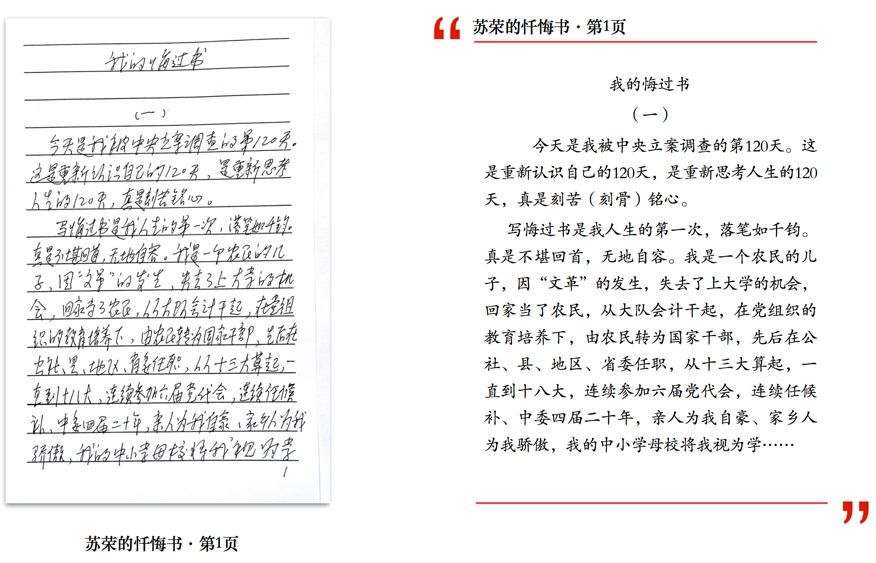 我的悔过书
（一）
今天是我被中央立案调查的第120天。
这是重新认识自己的120天，是重新思考
人生的120天，真是刻苦铭心。
写悔过书是我人生的第一次，落笔如千钧。
真是不堪回首，无地自容。我是一个农民的儿
子，因“文革”的发生，失去了上大学的机
会，回家当了农民，从大队会计干起，在党组
织的教育培养下，由农民转为国家干部，先后在
公社、县、地区、省委任职，从十三大算起，一
直到十八大，连续参加六届党代会，连续任候
补、中委四届二十年，亲人为我自豪、家乡人为我
骄傲，我的中小学母校将我视为学
1
苏荣的忏悔书·第1页
“
苏荣的忏悔书·第1页
我的悔过书
（一）
今天是我被中央立案调查的第120天。这
是重新认识自己的120天，是重新思考人生的120
天，真是刻苦（刻骨）铭心。
写悔过书是我人生的第一次，落笔如千钧。
真是不堪回首，无地自容。我是一个农民的儿
子，因“文革”的发生，失去了上大学的机会，
回家当了农民，从大队会计干起，在党组织的
教育培养下，由农民转为国家干部，先后在公
社、县、地区、省委任职，从十三大算起，一
直到十八大，连续参加六届党代会，连续任候
补、中委四届二十年，亲人为我自豪、家乡人
为我骄傲，我的中小学母校将我视为学……
”